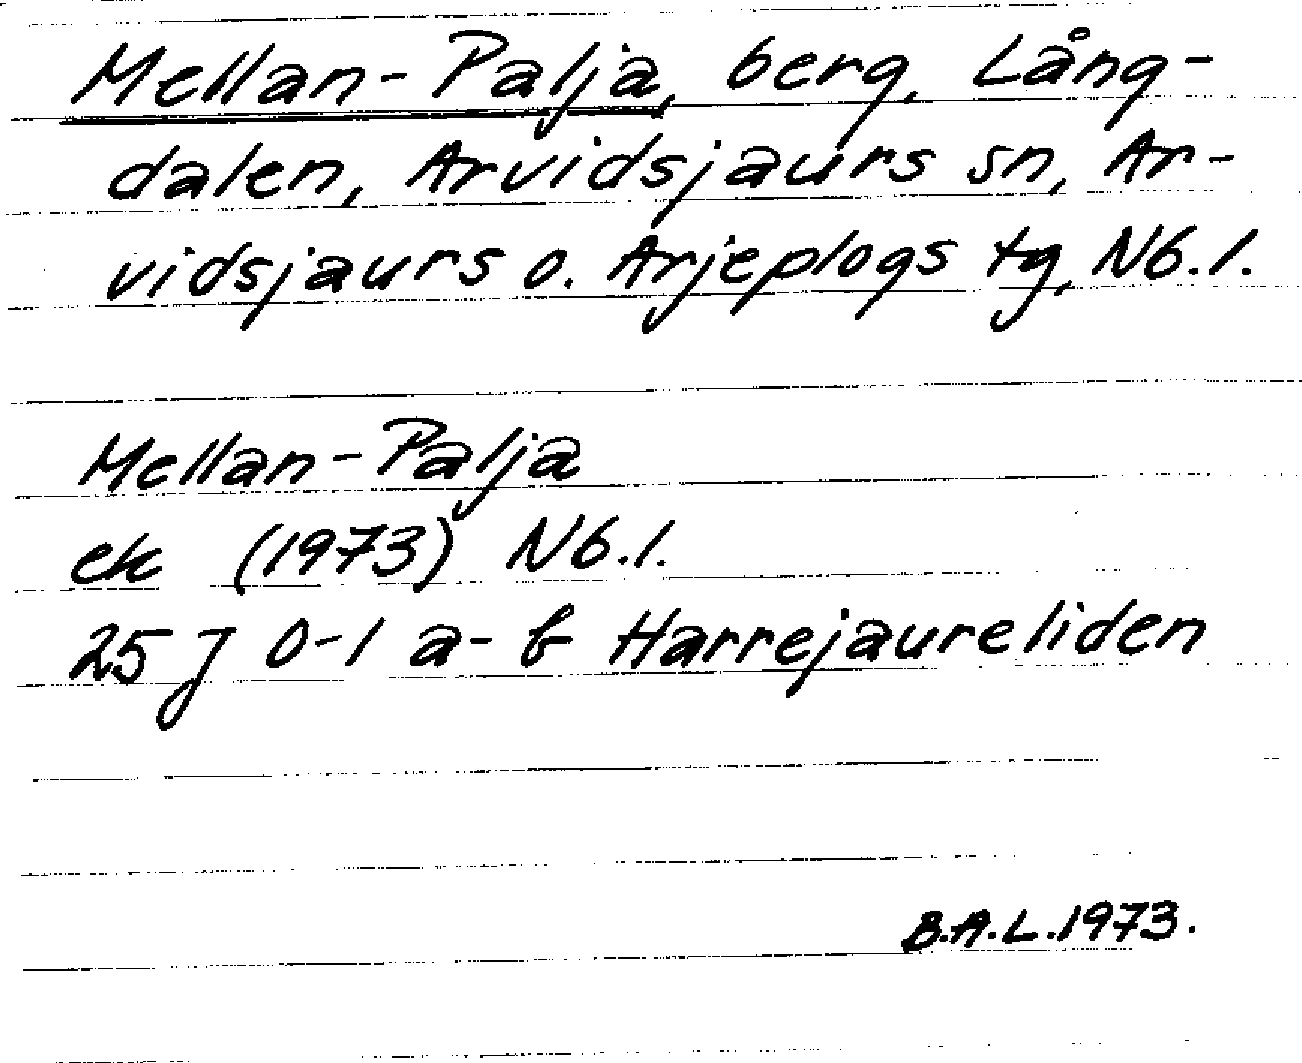 Mellan-Palja, berg, Lång-
dalen, Arvidsjaurs sn, Ar-
vidsjaurs o. Arjeplogs tg, Nb.l.
Mellan-Palja
ek (1973) Nb.l.
25 J 0-1 a-b Harrejaureliden
B.A.L.1973.